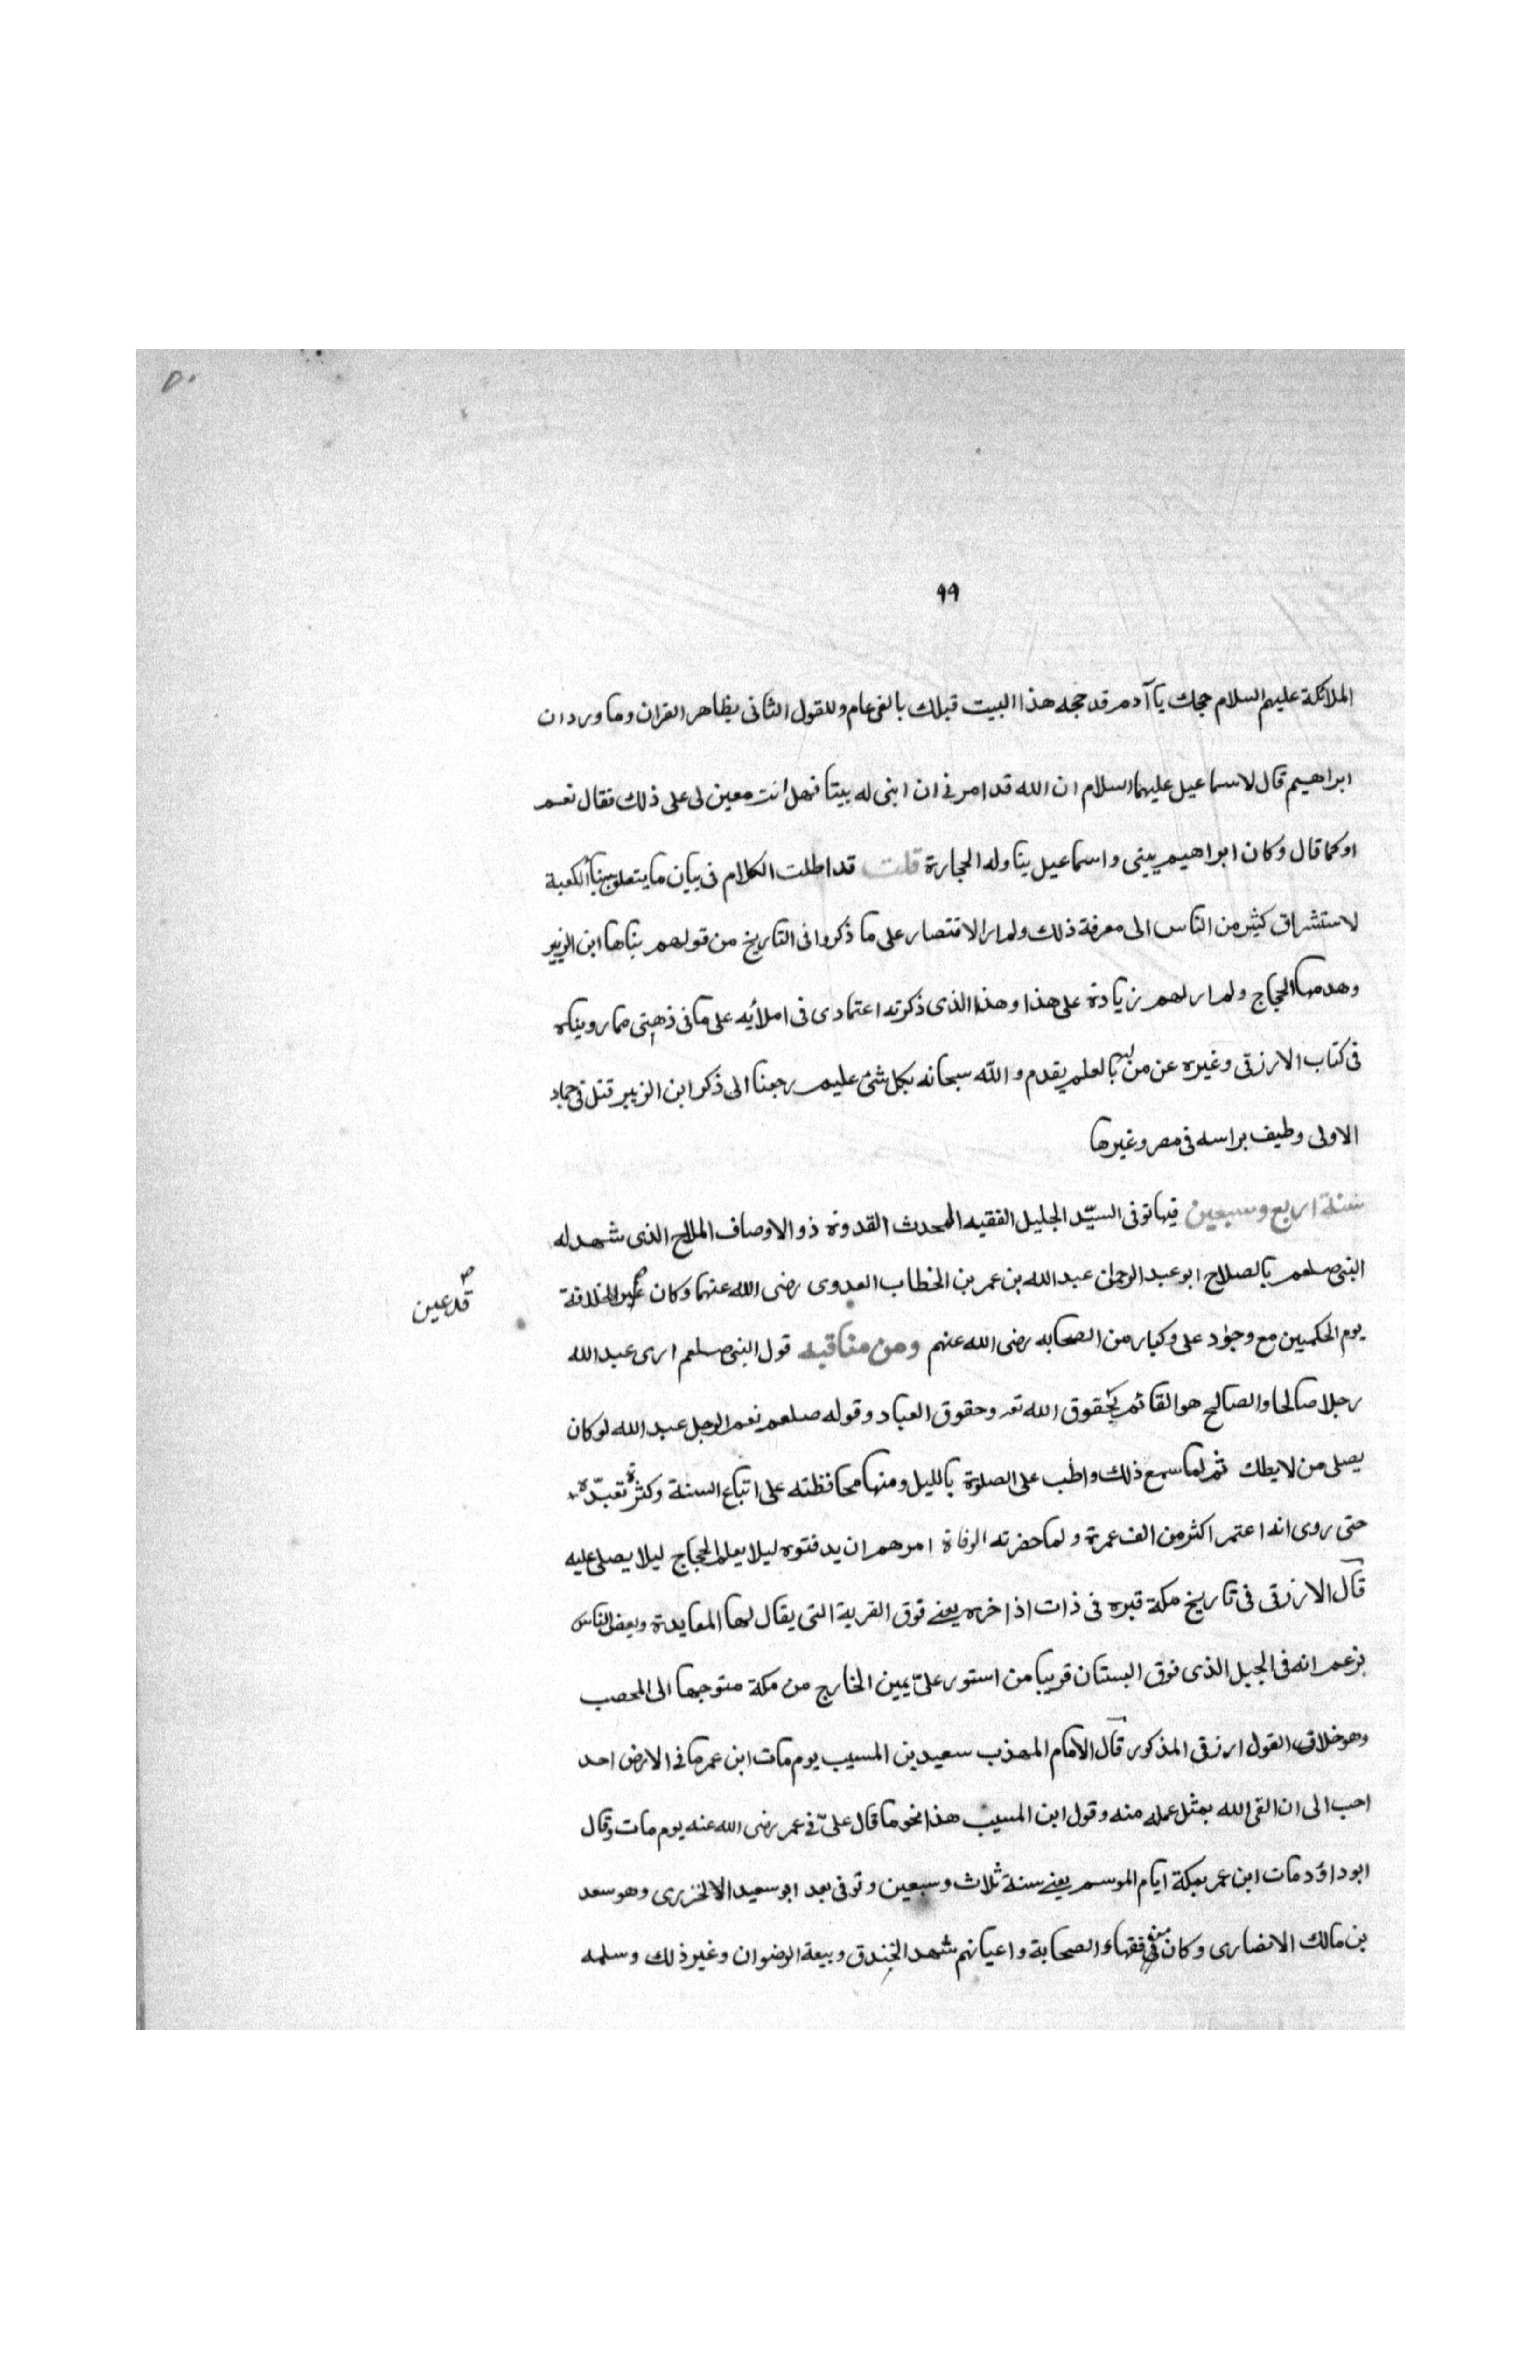 ٥٠
٩٩
الملائكة عليهم السلام حجك يا آدم قد حججه هذا البيت قبلك بالفى عام وللقول الثانى بظاهر القران وما ورد ان
ابراهيم قال لاسماعيل عليهما السلام ان الله قد امرنى ان ابنى له بيتا فهل انت معين لى على ذلك فقال نعم
اوكما قال وكان ابراهيم يبنى واسماعيل يناوله الحجارة قلت قد اطلت الكلام فى بيان ما يتعلق ببناء الكعبة
لاستشراق كثير من الناس الى معرفة ذلك ولم ار الاقتصار على ما ذكروا فى التاريخ من قولهم بناها ابن الزبير
وهدمها الحجاج ولم ار لهم زيادة على هذا وهذا الذى ذكرته اعتمادى فى املأيه على ما فى ذهنى مما رويناه
فى كتاب الازرقى وغيره عن من لهم بالعلم يقدم والله سبحانه بكل شئ عليم رجعنا الى ذكر ابن الزبير قتل فى جماد
الاولى وطيف براسه فى مصر وغيرها
سنة اربع وسبعين فيها توفى السيّد الجليل الفقيه المحدث القدوة ذو الاوصاف الملاح الذى شهد له
النبى صلعم بالصلاح ابو عبد الرحمان عبد الله بن عمر بن الخطاب العدوى رضى الله عنهما وكان للخلافة
قد عين
يوم الحكمين مع وجود على وكبار من الصحابه رضى الله عنهم ومن مناقبه قول النبى صلعم ارى عبد الله
رجلا صالحا والصالح هو القائم بحقوق الله تعـ وحقوق العباد وقوله صلعم نعم الرجل عبد الله لو كان
يصلى من لايطك ثم لما سمع ذلك واظب على الصلوة بالليل ومنها محافظته على اتباع السنة وكثرة تعبّده
حتى روى انه اعتمر اكثر من الف عمرة ولما حضرته الوفاة امرهم ان يدفنوه ليلا يعلم الحجاج ليلا يصلى عليه
قال الازرقى فى تاريخ مكة قبره فى ذات اذاخره يعنے فوق القرية التى يقال لها المعايدة وبعض الناس
يزعم انه فى الجبل الذى فوق البستان قريبا من استور علىّ يمين الخارج من مكة متوجها الى المحصب
وهو خلاف القول ارزقى المذكور قال الامام المهذب سعيد بن المسيب يوم مات ابن عمر ما فى الارض احد
احب الى ان القى الله بمثل عمله منه وقول ابن المسيب هذا نحو ما قال علىّ فى عمر رضى الله عنه يوم مات وقال
ابو داؤد مات ابن عمر بمكة ايام الموسم يعنے سنة ثلاث وسبعين وتوفى بعد ابو سعيد الالخزرى وهو سعد
بن مالك الانصارى وكان من فقهاء الصحابة واعيانهم شهد الخندق وبيعة الرضوان وغير ذلك وسلمه